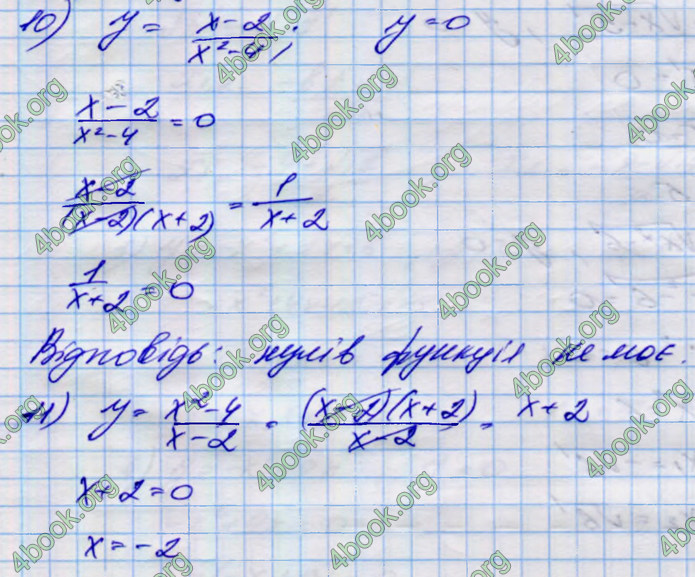 10) y = (x-2)/(x²-4); y=0
(x-2)/(x²-4) = 0
(x-2)/((x-2)(x+2)) = 1/(x+2)
1/(x+2) = 0
Відповідь: нулів функція не має.
11) y = (x²-4)/(x-2) = ((x-2)(x+2))/(x-2) = x+2
x+2=0
x=-2
4book.org